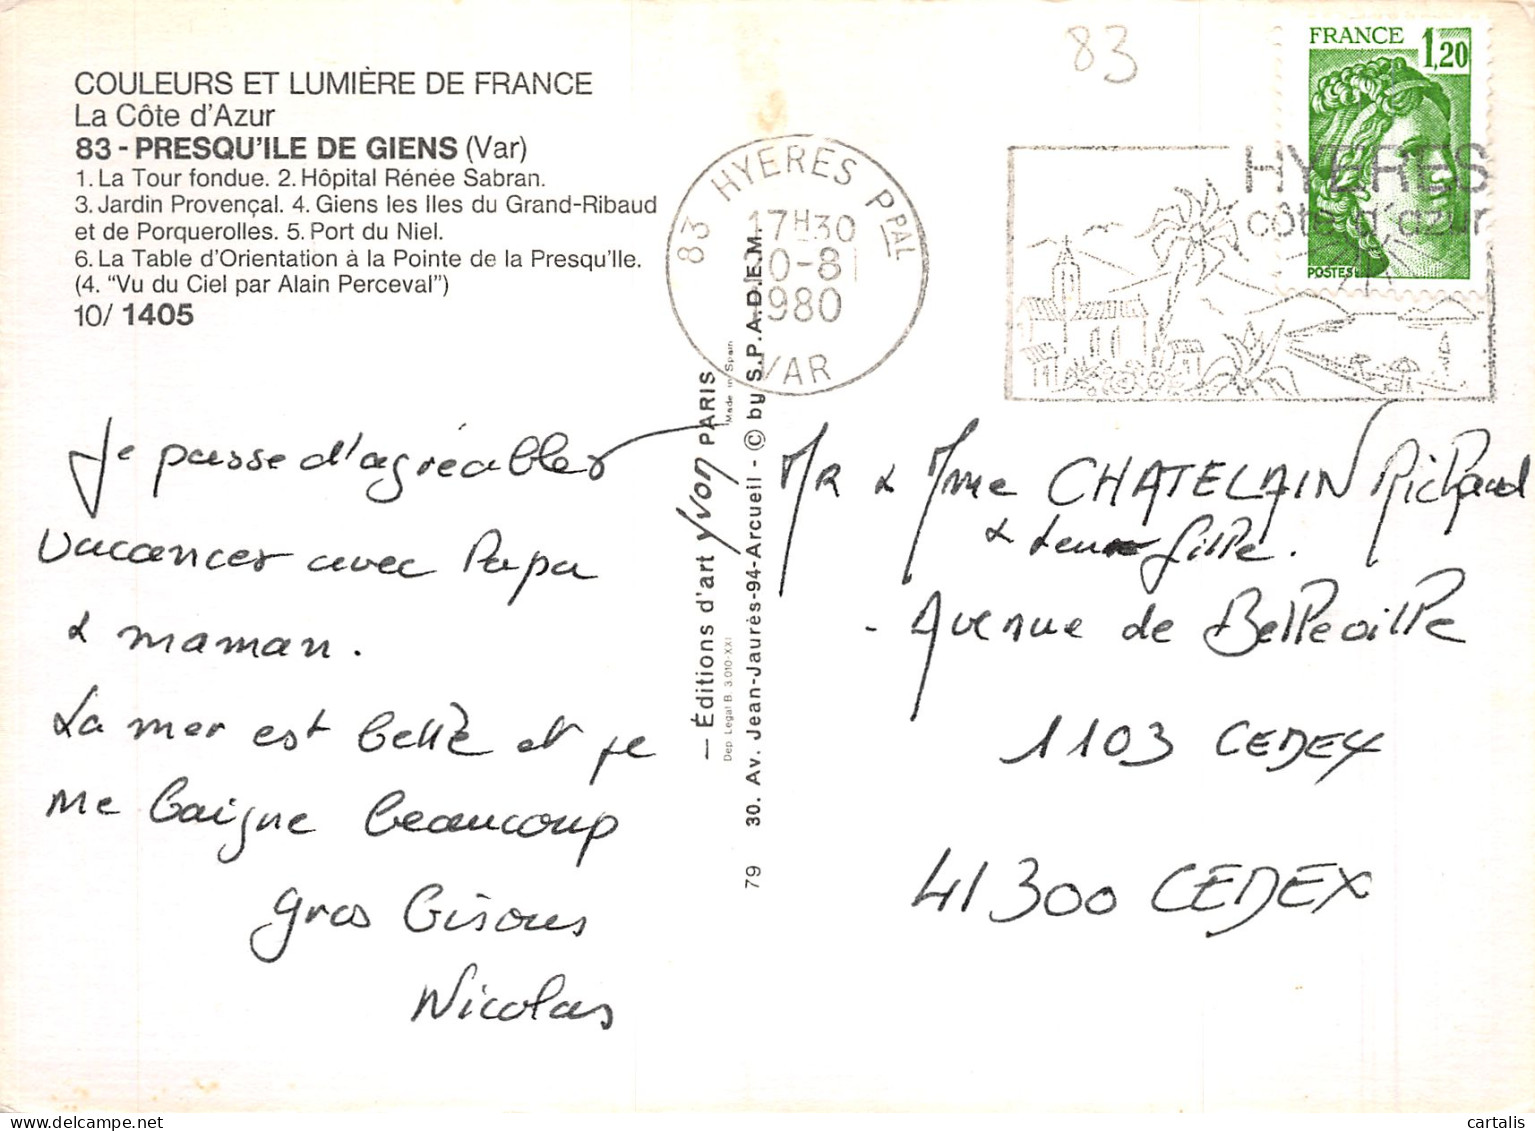 COULEURS ET LUMIÈRE DE FRANCE
La Côte d'Azur
83 - PRESQU'ILE DE GIENS (Var)
1. La Tour fondue. 2. Hôpital Rénée Sabran.
3. Jardin Provençal. 4. Giens les Iles du Grand-Ribaud
et de Porquerolles. 5. Port du Niel.
6. La Table d'Orientation à la Pointe de la Presqu'Ile.
(4. "Vu du Ciel par Alain Perceval")
10/ 1405
83
FRANCE 1,20
POSTES
83 HYERES PPAL
17H30
10-8
1980
VAR
HYERES
côte d'azur
Je passe d'agréables
vacances avec Papa
& maman.
La mer est belle et je
me baigne beaucoup
gros bisous
Nicolas
— Éditions d'art Yvon PARIS
Made in Spain
Dep. Legal B. 3.010-XXI
79 30. Av. Jean-Jaurès-94-Arcueil - © by S.P.A.D.E.M.
MR & Mme CHATELAIN Richard
& leur fille.
- Avenue de Belleville
1103 CEDEX
41300 CEDEX
cartalis